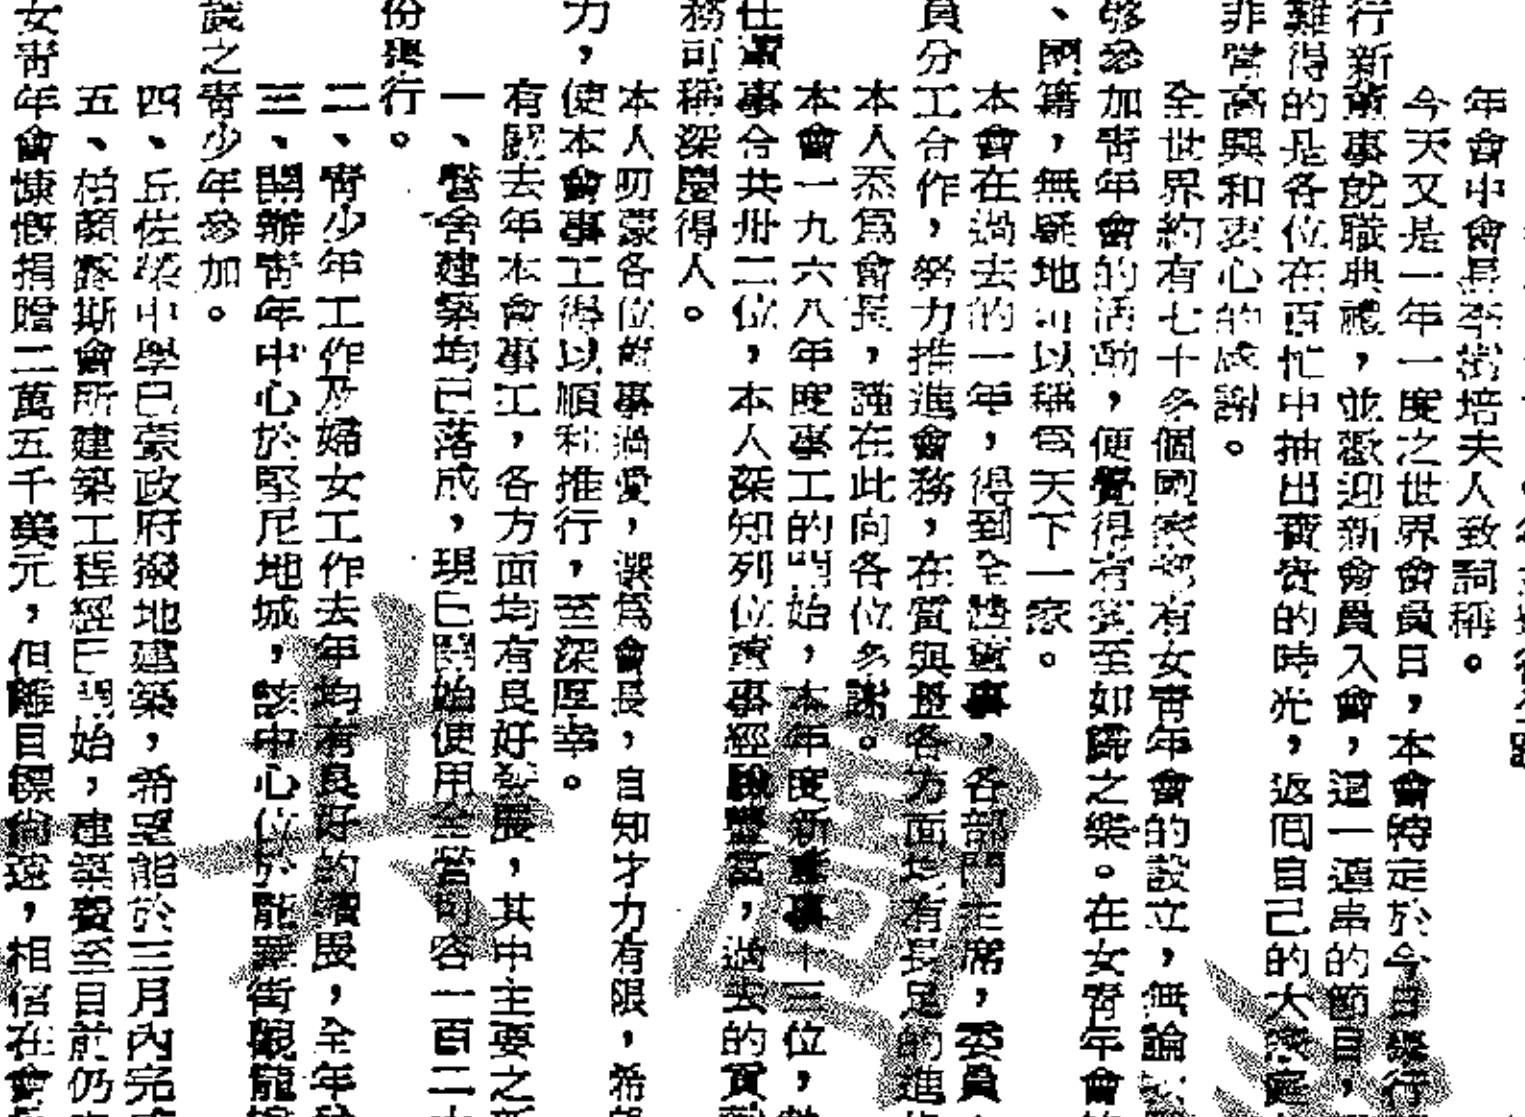 年會中會長李樹培夫人致詞稱。
今天又是一年一度之世界會員日，本會特定於今日舉行
行新董事就職典禮，並歡迎新會員入會，這一連串的節目，
難得的是各位在百忙中抽出寶貴的時光，返回自己的大家庭
非常高興和衷心的感謝。
全世界約有七十多個國家都有女青年會的設立，無論
够參加青年會的活動，便覺得有賓至如歸之樂。在女青年會
、國籍，無疑地可以稱爲天下一家。
本會在過去的一年，得到全體董事，各部門主席，委員
員分工合作，努力推進會務，在質與量各方面均有長足的進
本人忝爲會長，謹在此向各位多謝。
本會一九六八年度事工的開始，本年度新董事十三位，
任董事合共卅二位，本人深知列位董事經驗豐富，過去的貢
務可稱深慶得人。
本人叨蒙各位董事過愛，選爲會長，自知才力有限，希
力，使本會事工得以順利推行，至深厚幸。
有關去年本會事工，各方面均有良好發展，其中主要之
一、營舍建築均已落成，現已開始使用全營可容一百二
份舉行。
二、青少年工作及婦女工作去年均有良好的發展，全年
三、開辦青年中心於堅尼地城，該中心位於龍華街觀龍
歲之青少年參加。
四、丘佐榮中學已蒙政府撥地建築，希望能於三月內完
五、柏顏露斯會所建築工程經已開始，建築費至目前仍
女青年會慷慨捐贈二萬五千美元，但離目標尙遠，相信在會